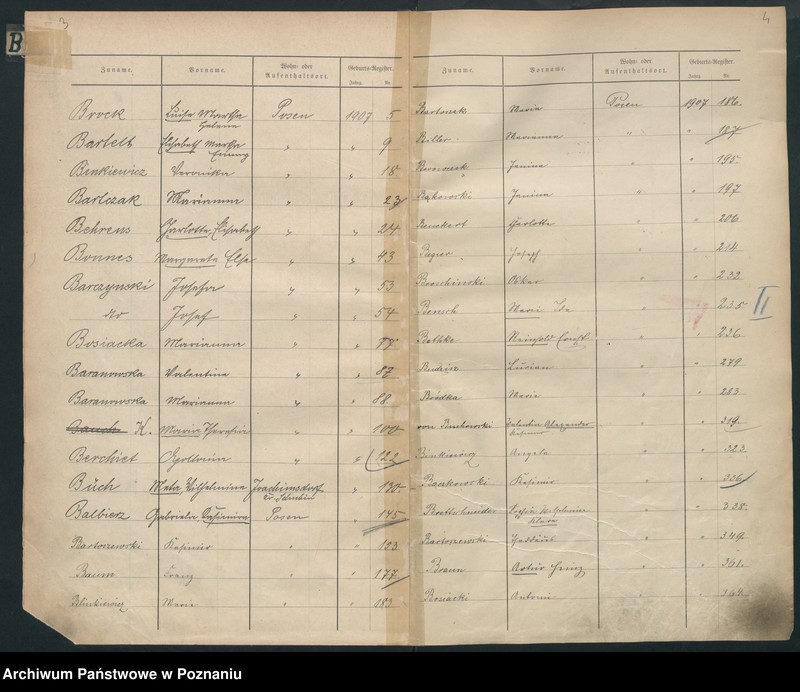 3
B
Zuname. Vorname. Wohn- oder Aufenthaltsort. Geburts-Register. Jahrg. Nr.
Brock Luise Martha Helene Posen 1907 5
Bartelt Elisabeth Martha " " 9
Binkiewicz Veronika " " 18
Bartczak Marianna " " 23
Behrens Charlotte Elisabeth " " 24
Bonnes Margarete Else " " 43
Barczynski Josefa " " 53
do Josef " " 54
Bosiacka Marianna " " 77
Baranowska Valentine " " 87
Baranowska Marianna " " 88
K. Maria " " 100
Berchiet Apollonia " " 122
Büch Meta Wilhelmine Joachimsdorf Kr. Schubin " 130
Balbierz Gabriela Kasimira Posen " 145
Bartoszewski Kasimir " " 153
Baume Franz " " 177
Binkiewicz Maria " " 183
4
Zuname. Vorname. Wohn- oder Aufenthaltsort. Geburts-Register. Jahrg. Nr.
Bartoszek Maria Posen 1907 186.
Biller Marianna " " 187
Janina " " 195
Bąkowski Janina " " 197
Benckert Charlotte " " 206
Bagier Joseph " " 214
Broschinski Oskar " " 232
Biensch Marie Ida " " 235
II
Bethke Reinhold Ernst " " 236
Budzisz Lucian " " 279
Bródka Marie " " 283
von Buchowski Valentin Alexander Kasimir " " 319.
Binkiewicz Angela " " 323.
Baczkowski Kasimir " " 336
Brettschneider Luzie Wilhelmine Klara " " 338.
Bartoszewski Thaddäus " " 349.
Braun Artur Heinz " " 361.
Bosiacki Antoni " " 364
Archiwum Państwowe w Poznaniu